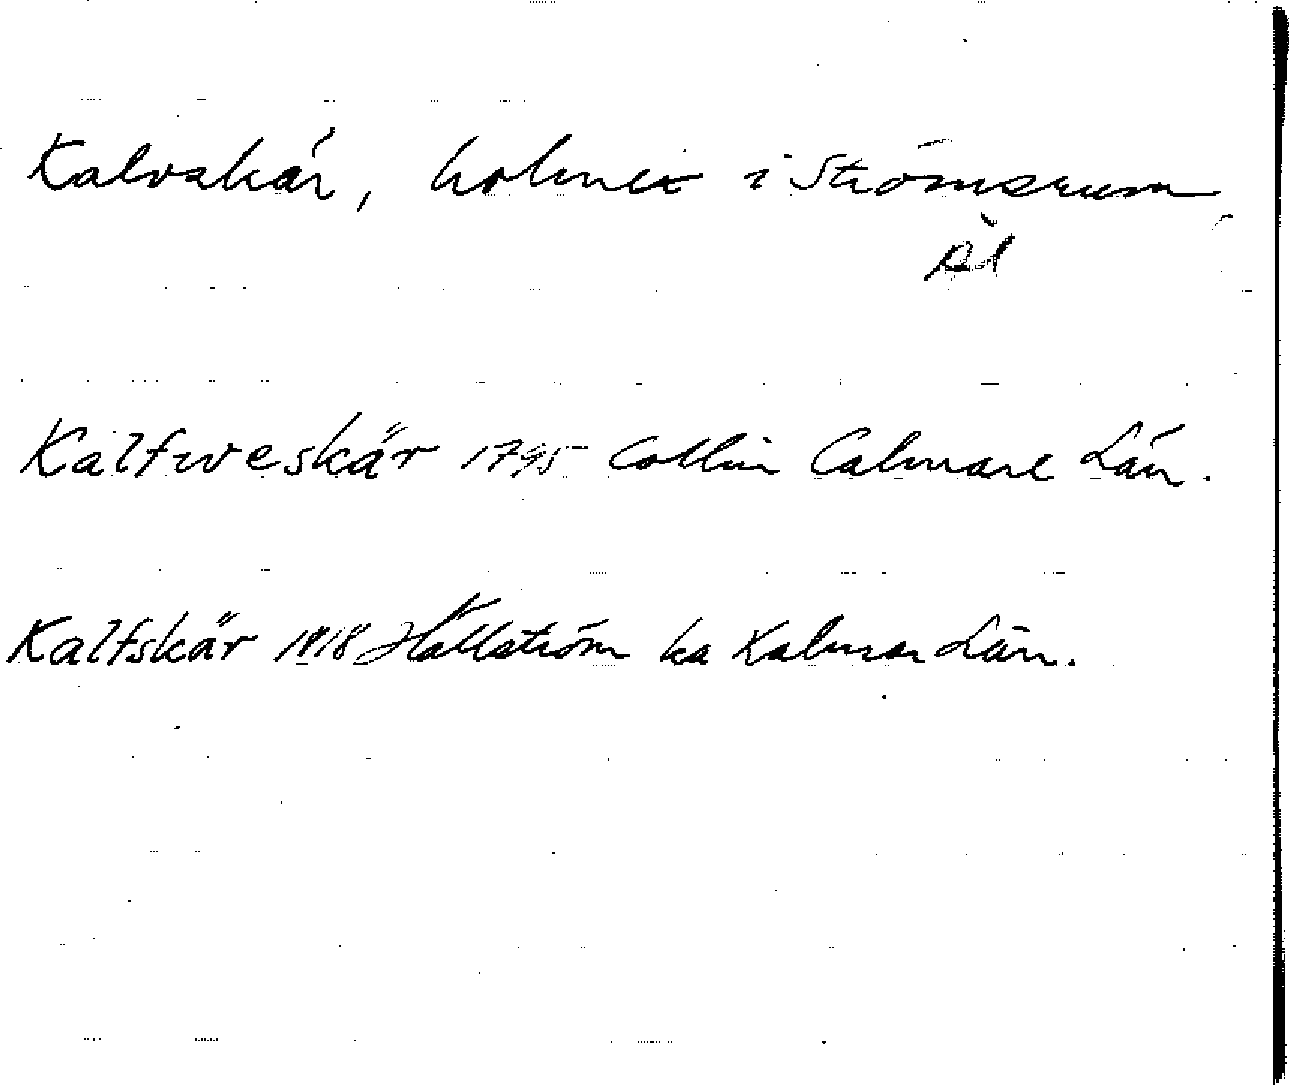 Kalvskär, holmer i Strömserum,
Ål
Kalfweskär 1795 Collin Calmare Län.
Kalfskär 1818 Hällström ka Kalmar Län.